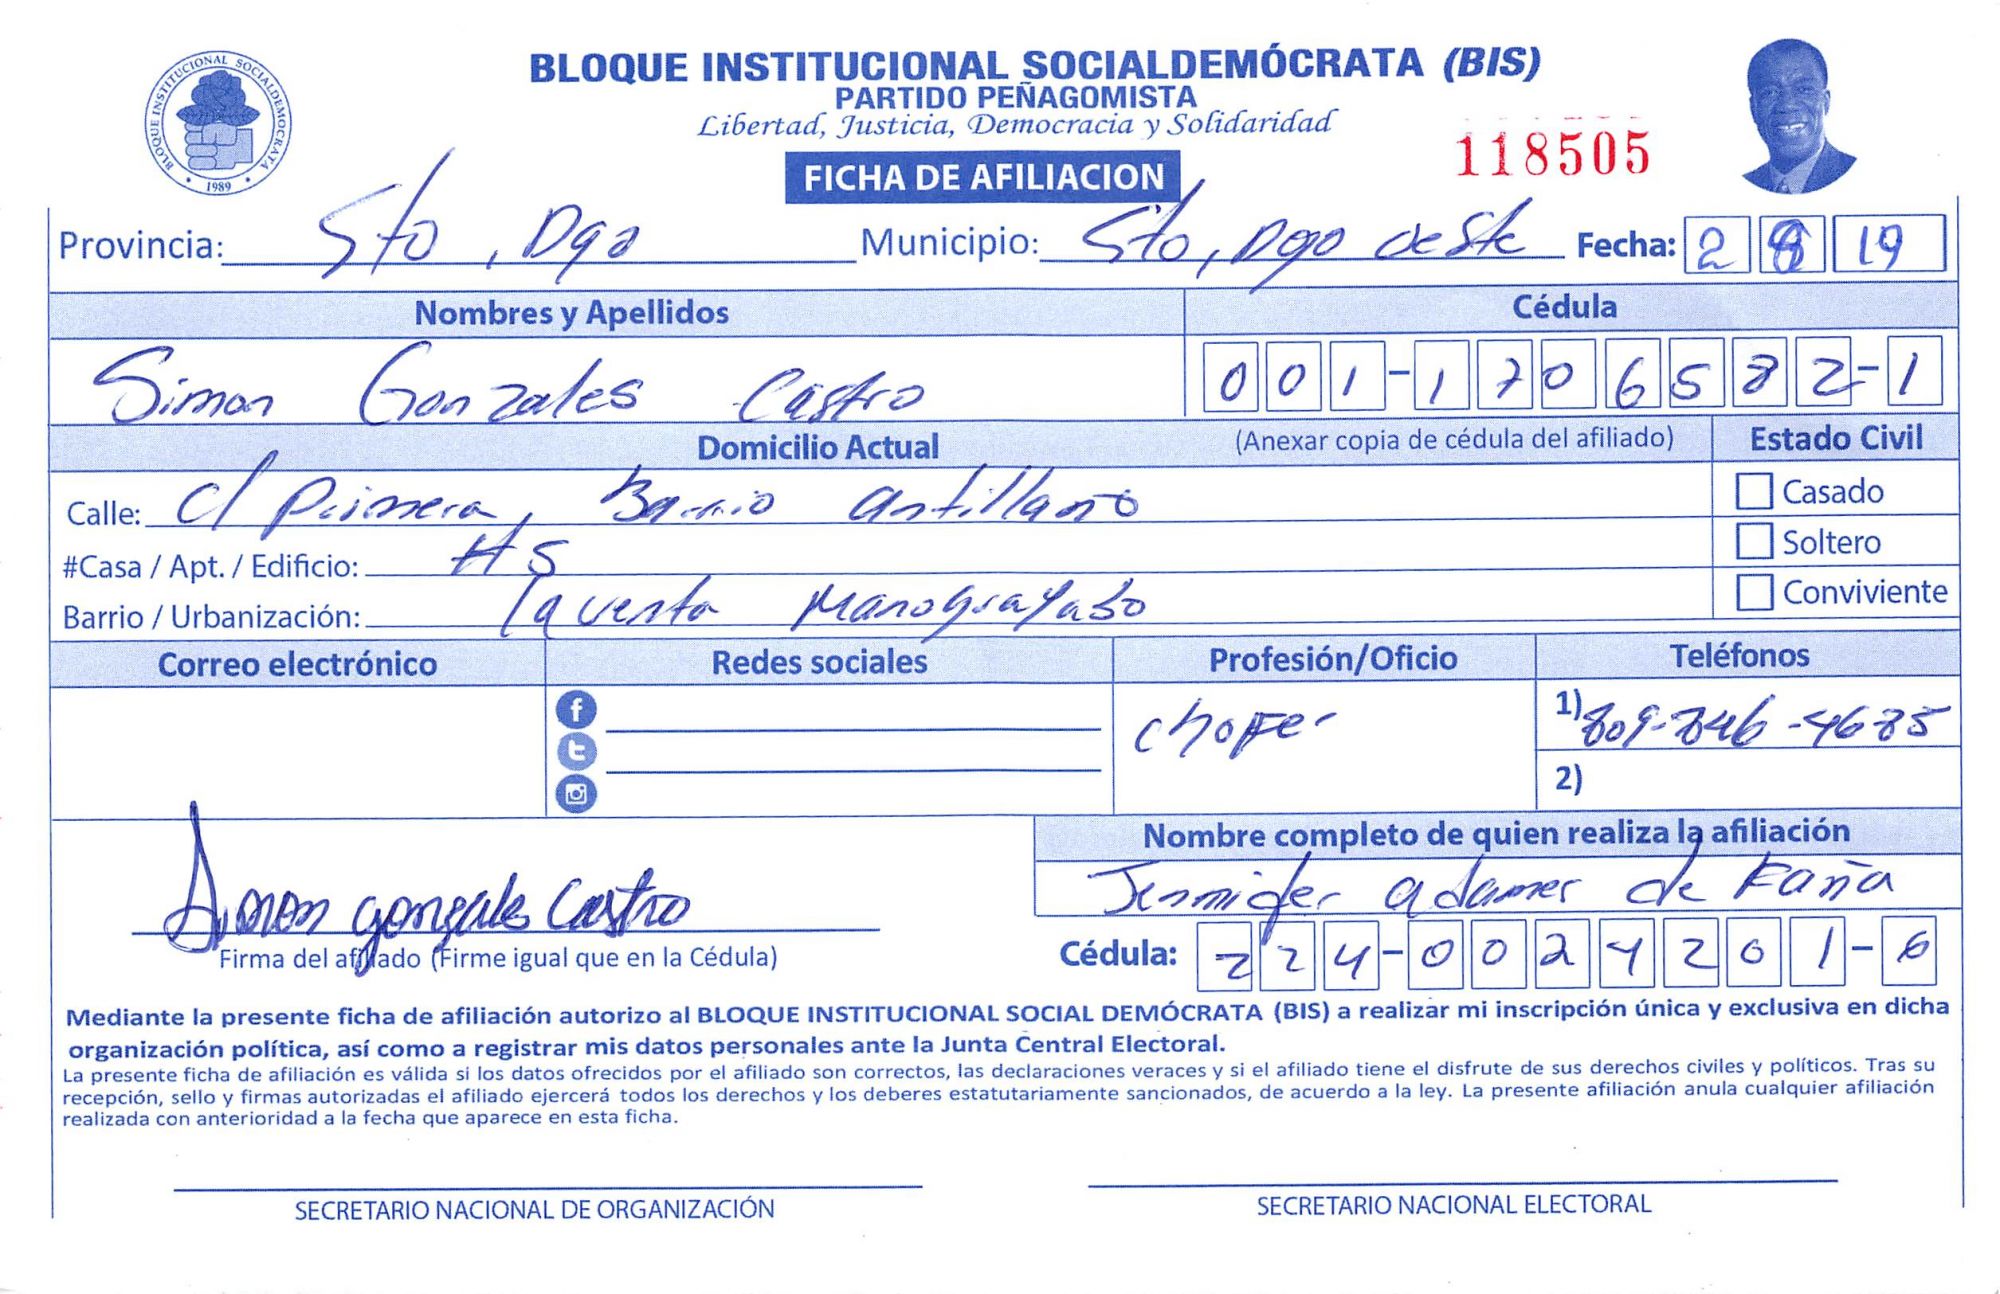 BLOQUE INSTITUCIONAL SOCIALDEMÓCRATA (BIS)
PARTIDO PEÑAGOMISTA
Libertad, Justicia, Democracia y Solidaridad
BLOQUE INSTITUCIONAL SOCIALDEMOCRATA
1989
118505
FICHA DE AFILIACION
Provincia: Sto, Dgo Municipio: Sto, Dgo oeste Fecha: 2 8 19
Nombres y Apellidos Cédula
Simon Gonzales Castro 001-1706582-1
Domicilio Actual (Anexar copia de cédula del afiliado) Estado Civil
Calle: c/ Primera, Barrio antillano Casado
#Casa / Apt. / Edificio: #5 Soltero
Barrio / Urbanización: la venta Manoguayabo Conviviente
Correo electrónico Redes sociales Profesión/Oficio Teléfonos
chofer 1) 809-846-4685
2)
Nombre completo de quien realiza la afiliación
Jennifer adames de
Simon gonzales Castro
Firma del afiliado (Firme igual que en la Cédula) Cédula: 224-0024201-6
Mediante la presente ficha de afiliación autorizo al BLOQUE INSTITUCIONAL SOCIAL DEMÓCRATA (BIS) a realizar mi inscripción única y exclusiva en dicha
organización política, así como a registrar mis datos personales ante la Junta Central Electoral.
La presente ficha de afiliación es válida si los datos ofrecidos por el afiliado son correctos, las declaraciones veraces y si el afiliado tiene el disfrute de sus derechos civiles y políticos. Tras su
recepción, sello y firmas autorizadas el afiliado ejercerá todos los derechos y los deberes estatutariamente sancionados, de acuerdo a la ley. La presente afiliación anula cualquier afiliación
realizada con anterioridad a la fecha que aparece en esta ficha.
SECRETARIO NACIONAL DE ORGANIZACIÓN SECRETARIO NACIONAL ELECTORAL